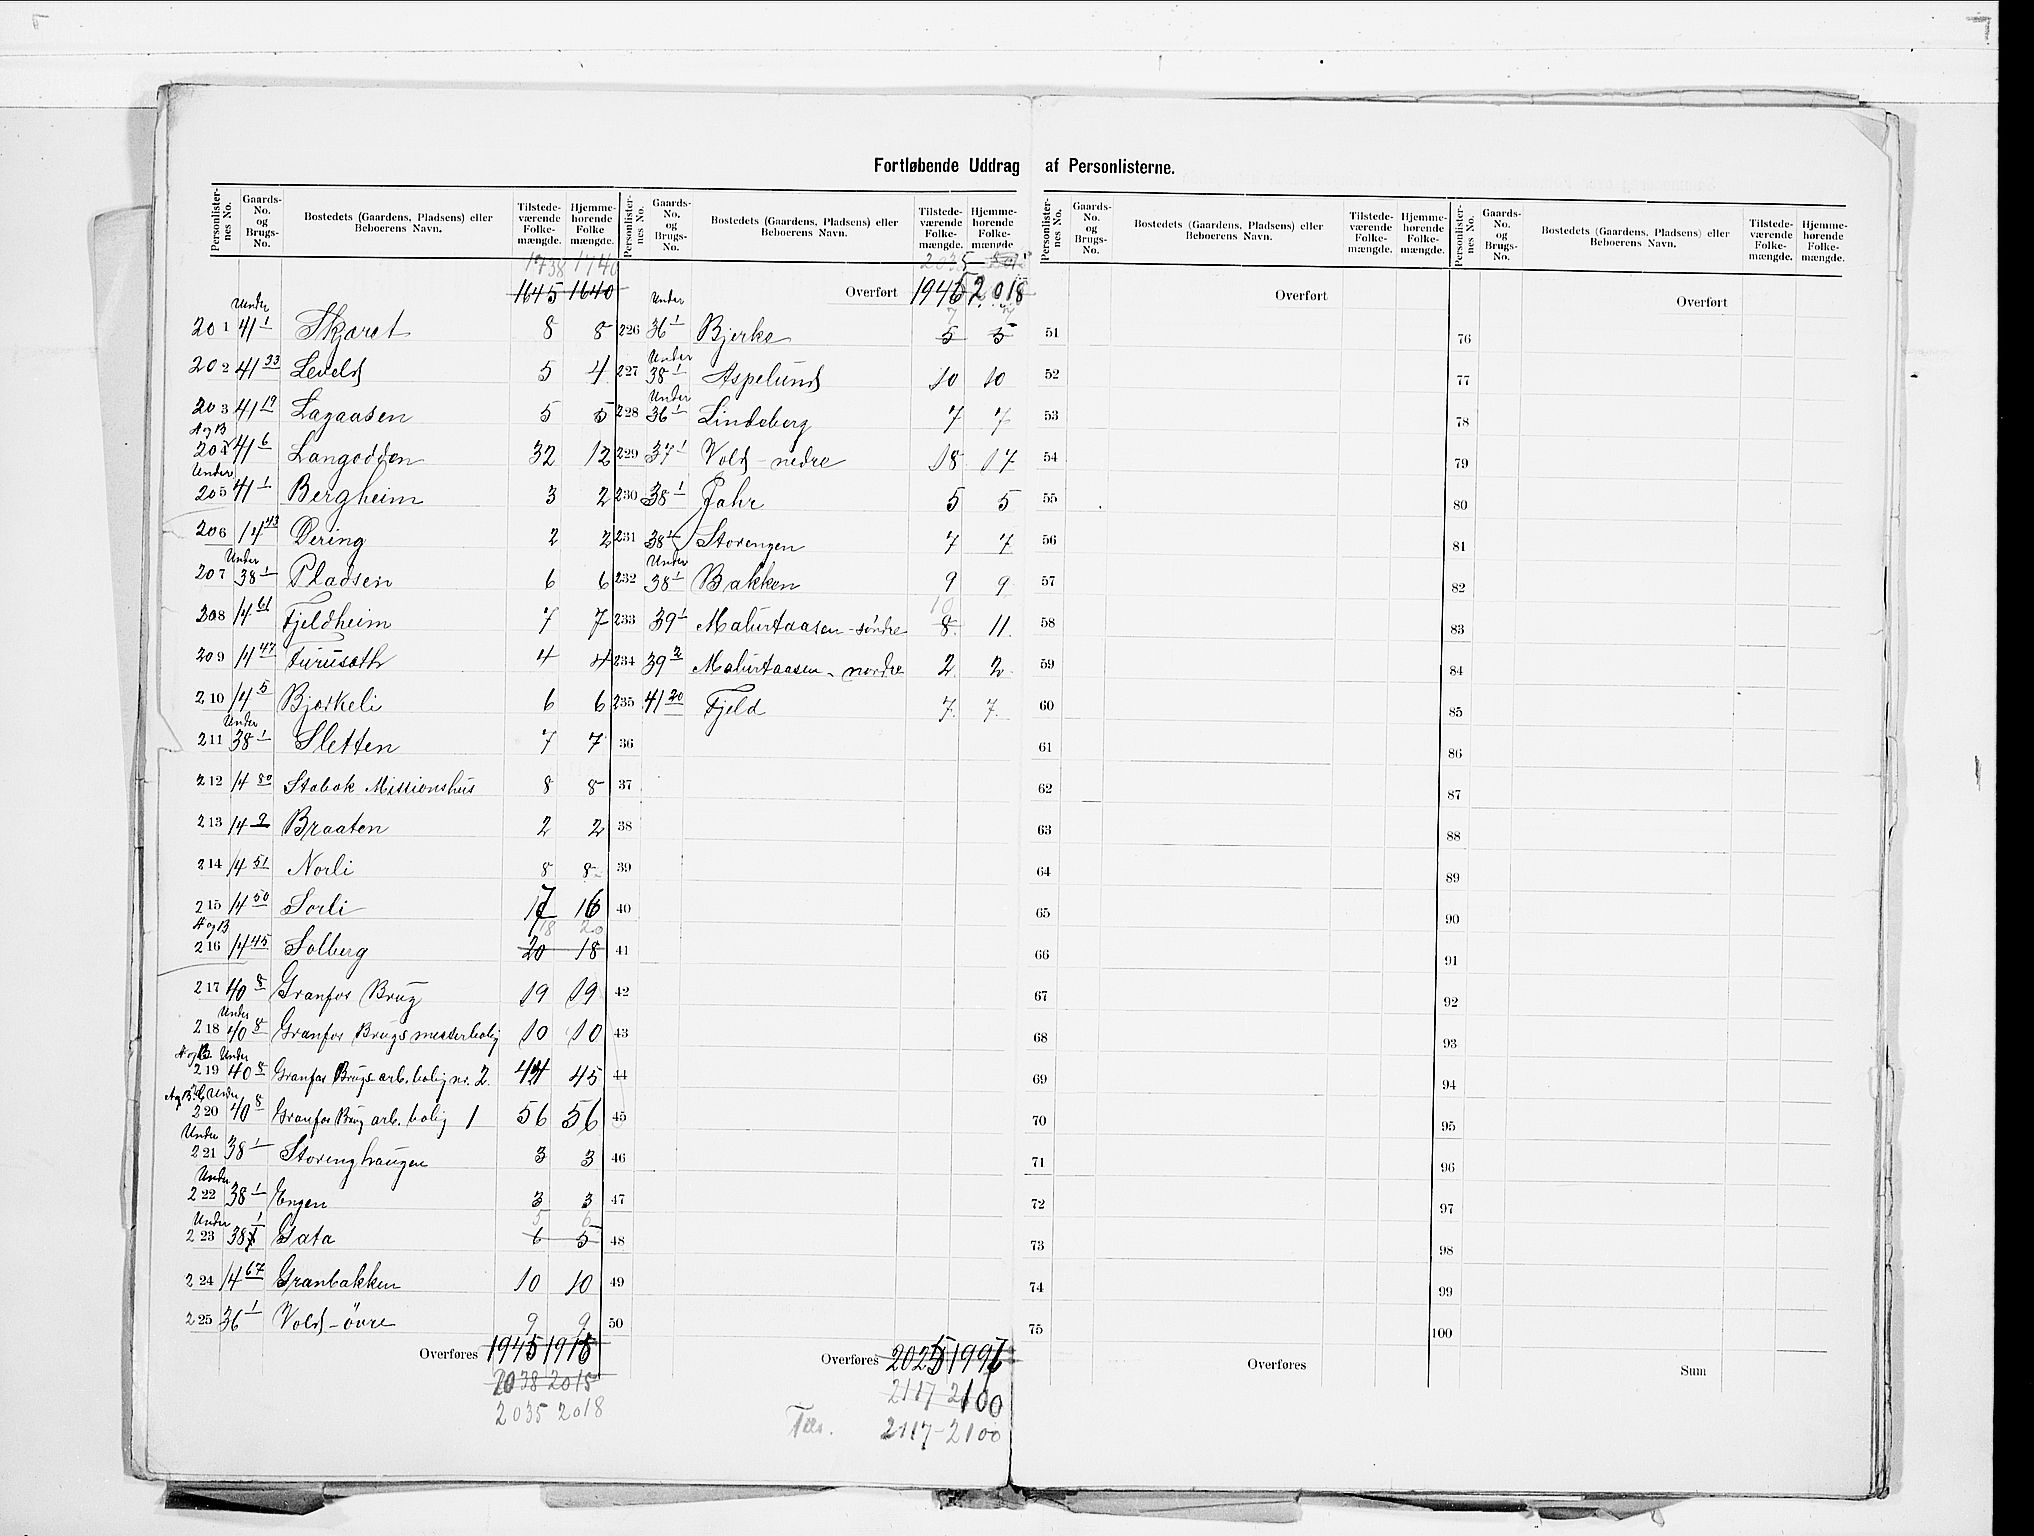 Fortløbende Uddrag af Personlisterne.
Personlisternes No. Gaards-No. og Brugs-No. Bostedets (Gaardens, Pladsens) eller Beboerens Navn. Tilstedeværende Folkemængde. Hjemmehørende Folkemængde.
1738 1740
1645 1640
Under
201 41 1 Skjaret 8 8
202 41 33 Leveld 5 4
203 41 19 Lagaasen 5 5
A og B
204 41 6 Langodden 32 12
Under
205 41 1 Bergheim 3 2
206 14 43 Dering 2 2
Under
207 38 1 Pladsen 6 6
208 14 61 Fjeldheim 7 7
209 14 47 Furuseth 4 4
210 14 5 Bjerkeli 6 6
Under
211 38 1 Sletten 7 7
212 14 80 Stabæk Missionshus 8 8
213 14 9 Braaten 2 2
214 14 51 Norli 8 8
215 14 50 Sorli 17 16
A og B 18 20
216 14 45 Solberg 20 18
217 40 8 Granfos Brug 19 19
Under
218 40 8 Granfos Brugs mesterbolig 10 10
A og B Under
219 40 8 Granfos Brugs arb. bolig nr. 2. 44 45
Under
220 40 8 Granfos Brug arb. bolig 1 56 56
Under
221 38 1 Storenghaugen 3 3
Under
222 38 1 Engen 3 3
Under 5 6
223 38 1 Gata 6 5
224 14 67 Granbakken 10 10
225 36 1 Vold - övre 9 9
Overføres 1945 1918
2038 2015
2035 2018
Personlisternes No. Gaards-No. og Brugs-No. Bostedets (Gaardens, Pladsens) eller Beboerens Navn. Tilstedeværende Folkemængde. Hjemmehørende Folkemængde.
2035
Overført 1945 2018
Under 7 7
226 36 1 Bjerke 5 5
Under
227 38 1 Aspelund 10 10
Under
228 36 1 Lindeberg 7 7
229 37 1 Vold - nedre 18 17
230 38 1 Jahr 5 5
231 38 1 Storengen 7 7
Under
232 38 1 Bakken 9 9
10
233 39 1 Malurtaasen - söndre 8 11
234 39 2 Malurtaasen - nordre 2 2
235 41 20 Fjeld 7 7
36
37
38
39
40
41
42
43
44
45
46
47
48
49
50
Overføres 2025 1997
2117 2100
2117 - 2100
Personlisternes No. Gaards-No. og Brugs-No. Bostedets (Gaardens, Pladsens) eller Beboerens Navn. Tilstedeværende Folkemængde. Hjemmehørende Folkemængde.
Overført
51
52
53
54
55
56
57
58
59
60
61
62
63
64
65
66
67
68
69
70
71
72
73
74
75
Overføres
Personlisternes No. Gaards-No. og Brugs-No. Bostedets (Gaardens, Pladsens) eller Beboerens Navn. Tilstedeværende Folkemængde. Hjemmehørende Folkemængde.
Overført
76
77
78
79
80
81
82
83
84
85
86
87
88
89
90
91
92
93
94
95
96
97
98
99
100
Sum